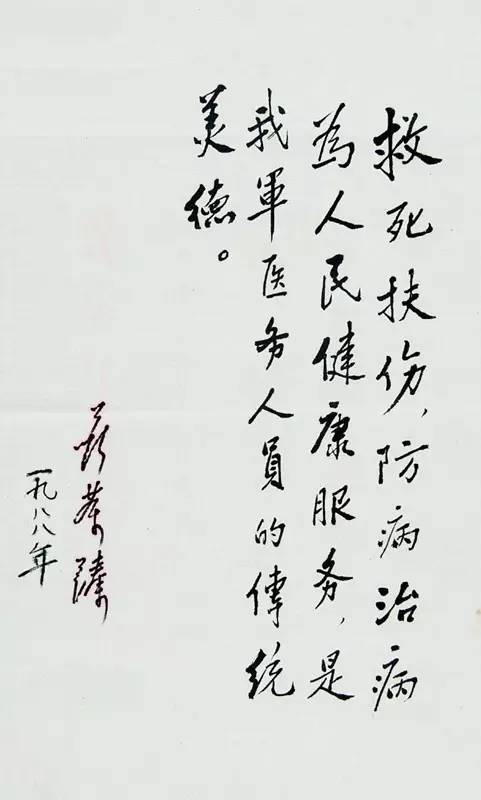 救死扶伤，防病治病
為人民健康服务，是
我軍医务人員的傳統
美德。
聂荣臻
一九八八年